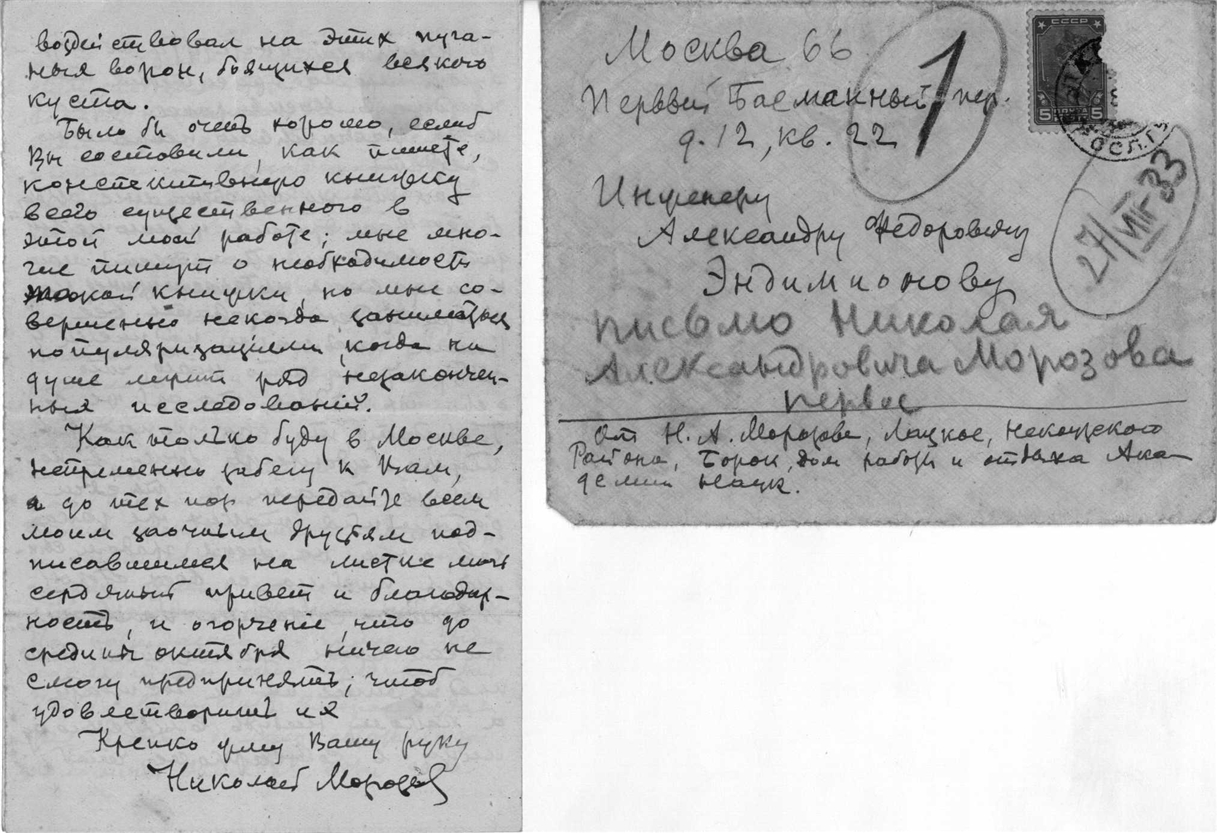 воздействовал на этих пуга-
ных ворон, боящихся всякого
куста.
Было бы очень хорошо, еслиб
Вы составили, как пишете,
конспективную книжку
всего существенного в
этой моей работе; мне мно-
гие пишут о необходимость
такой книжки, но мне со-
вершенно некогда заниматься
популяризацией, когда на
душе лежит ряд незакончен-
ных исследований.
Как только буду в Москве,
непременно забегу к Вам,
а до тех пор передайте всем
моим заочным друзьям под-
писавшимся на листке мой
сердечный привет и благодар-
ность, и огорчение, что до
средины октября ничего не
смогу предпринять, чтоб
удовлетворить их
Крепко жму Вашу руку
Николай Морозов
Москва 66
Первый Басманный пер.
д. 12, кв. 22
1
СССР
5 ПОЧТА 5
27/VIII-33
Инженеру
Александру Федоровичу
Эндимионову
письмо Николая
Александровича Морозова
первое
От Н. А. Морозова, Лацкое, Некоузского
Района, Борок, дом работы и отдыха Ака-
демии Наук.